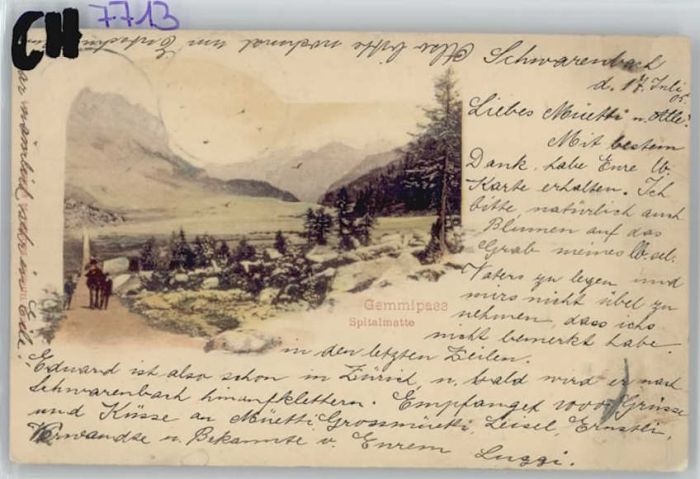 CH 7713
Schwarenbach
d. 17. Juli
Liebes Müetti u. Alle!
Mit bestem
Dank, habe Eure lb.
Karte erhalten. Ich
bitte, natürlich auch
Blumen auf das
Grab meines sel.
Vaters zu legen und
mirs nicht übel zu
nehmen, dass ichs
nicht bemerkt habe
in den letzten Zeilen.
Eduard ist also schon in Zürich, u. bald wird er nach
Schwarenbach hinaufklettern. Empfanget 1000 Grüsse
und Küsse an Müetti, Grossmüetti, Leisel, Ernstli,
Verwandte u. Bekannte v. Eurem Luggi.
Gemmipass
Spitalmatte
Also bitte nochmal um
war nämlich sehr in Eile.